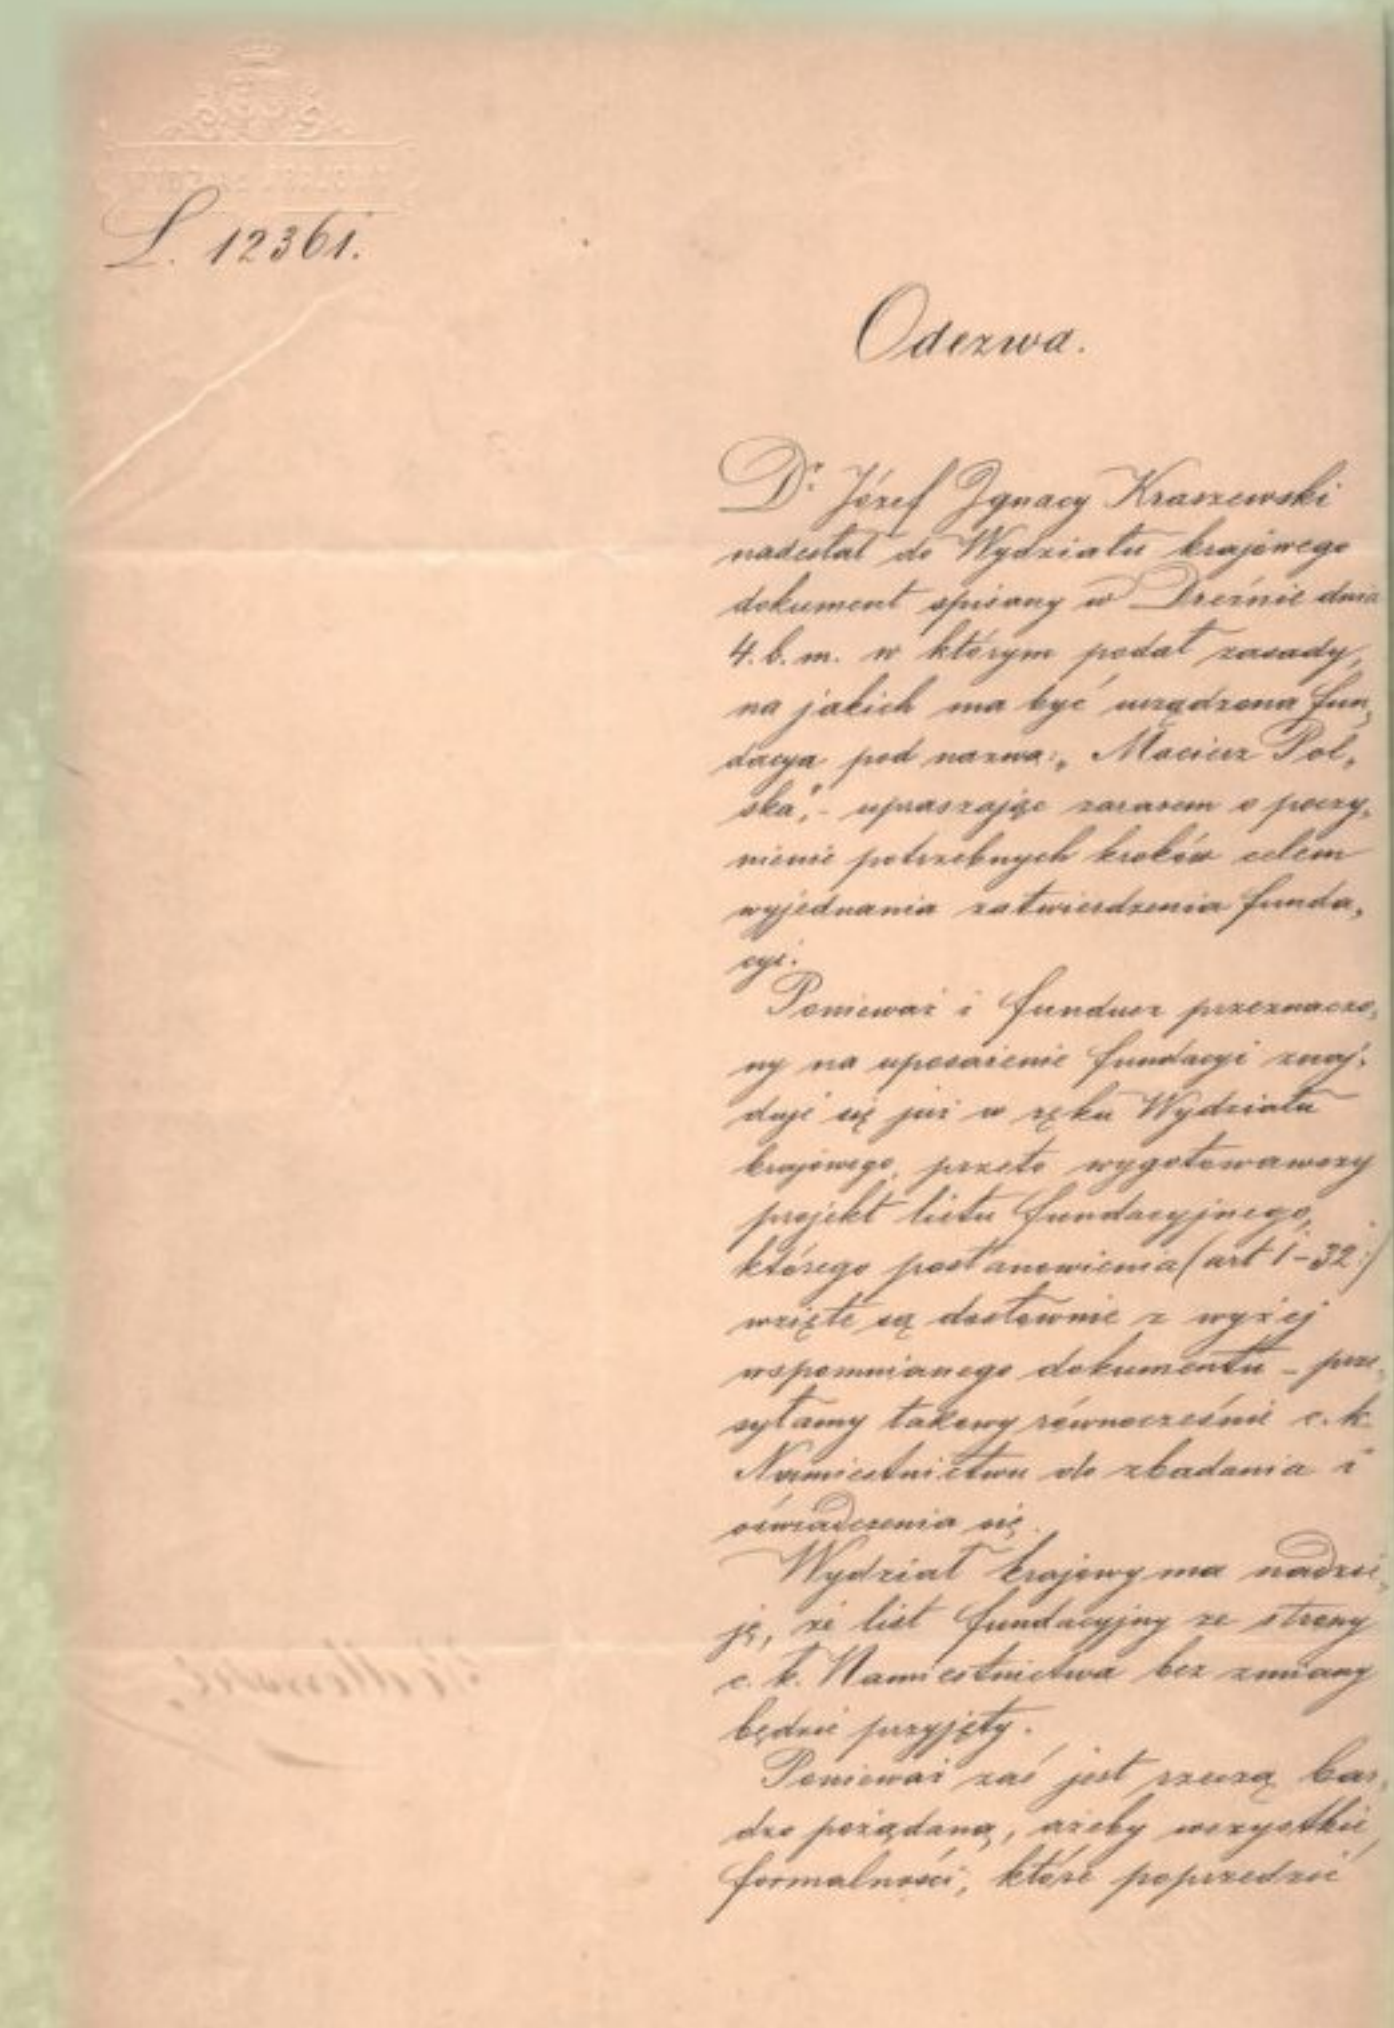 WYDZIAŁ KRAJOWY
L. 12361.
Odezwa.
Dr. Józef Ignacy Kraszewski
nadesłał do Wydziału krajowego
dokument spisany w Dreźnie dnia
4. b. m. w którym podał zasady,
na jakich ma być urządzona fun„
dacya pod nazwą: „Macierz Pol„
ska",- upraszając zarazem o poczy„
nienie potrzebnych kroków celem
wyjednania zatwierdzenia funda„
cyi.
Ponieważ i fundusz przeznaczo„
ny na uposażenie fundacyi znaj„
duje się już w ręku Wydziału
krajowego, przeto wygotowawszy
projekt listu fundacyjnego,
którego postanowienia (art 1-32:)
wzięte są dosłownie z wyżej
wspomnianego dokumentu – prze„
syłamy takowy równocześnie c. k.
Namiestnictwu do zbadania i
oświadczenia się.
Wydział krajowy ma nadzie„
ję, że list fundacyjny ze strony
c. k. Namiestnictwa bez zmiany
będzie przyjęty.
Ponieważ zaś jest rzeczą bar„
dzo pożądaną, ażeby wszystkie
formalności, które poprzedzić